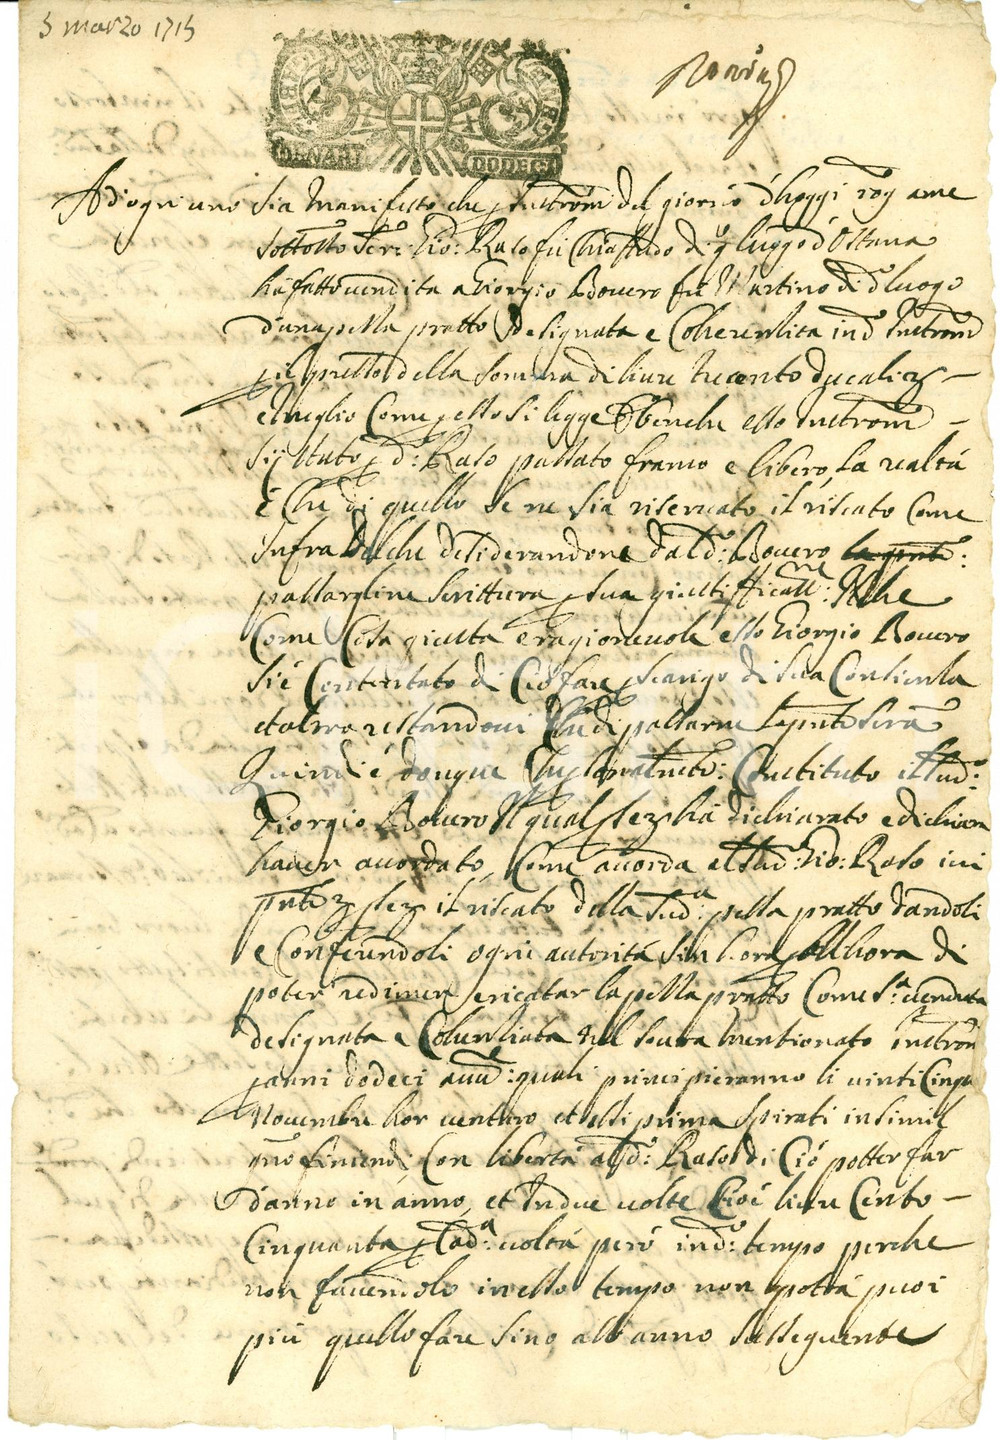 5 marzo 1715
DENARI DODECI
Ad ogn'uno sia Manifesto che p Instrom del giorno d'hoggi rog a me
sottotto Ser: Gio: Raso fu Chiaffredo di qo luoggo d'Ostana
ha fatto vendita a Giorgio Bovero fu Martino di do luogo
d'una pella pratto designata e Coherentiata in do Instrom
p il pretto della somma di livre trecento ducali
e meglio Come p esso si legge E benche esso Instrom
sij stato p do: Raso passato franco e libero, La realtá
é Che di quello se ne sia riservato il riscato Come
infra Del che desiderandone dal do: Bovero
passargline scrittura p sua giustifficatne: Il che
Come Cosa giusta e ragionevole esso Giorgio Bovero
si é Contentato di Ció fare p scarigo di sua Conscienza
et altro restandovi Che di passarne la pnte Scra
Quindi é donque Che Constituto il sud:
Giorgio Bovero Il qual há dichiarato e dichiara
haver accordato, Come accorda al sud: Gio: Raso ivi
pnte il riscato della sud:a pella pratto dandoli
e Conferendoli ogni autoritá sin hora p allhora di
poter redimer e ricatar la pella pratto Come sa venduta
designata e Coherentiata nel sovra mentionato Instrom
p anni dodeci avve: quali principieranno li vinti Cinque
Novembre hor venturo et essi prima spirati in simil
gno finiendi Con libertá al do: Raso di Ció potter far
d'anno in anno, et In due volte Cioé livre Cento
Cinquanta p Cada: volta peró in do: tempo perche
non facendolo in esso tempo non potrá puoi
piú quello fare sino all'anno susseguente